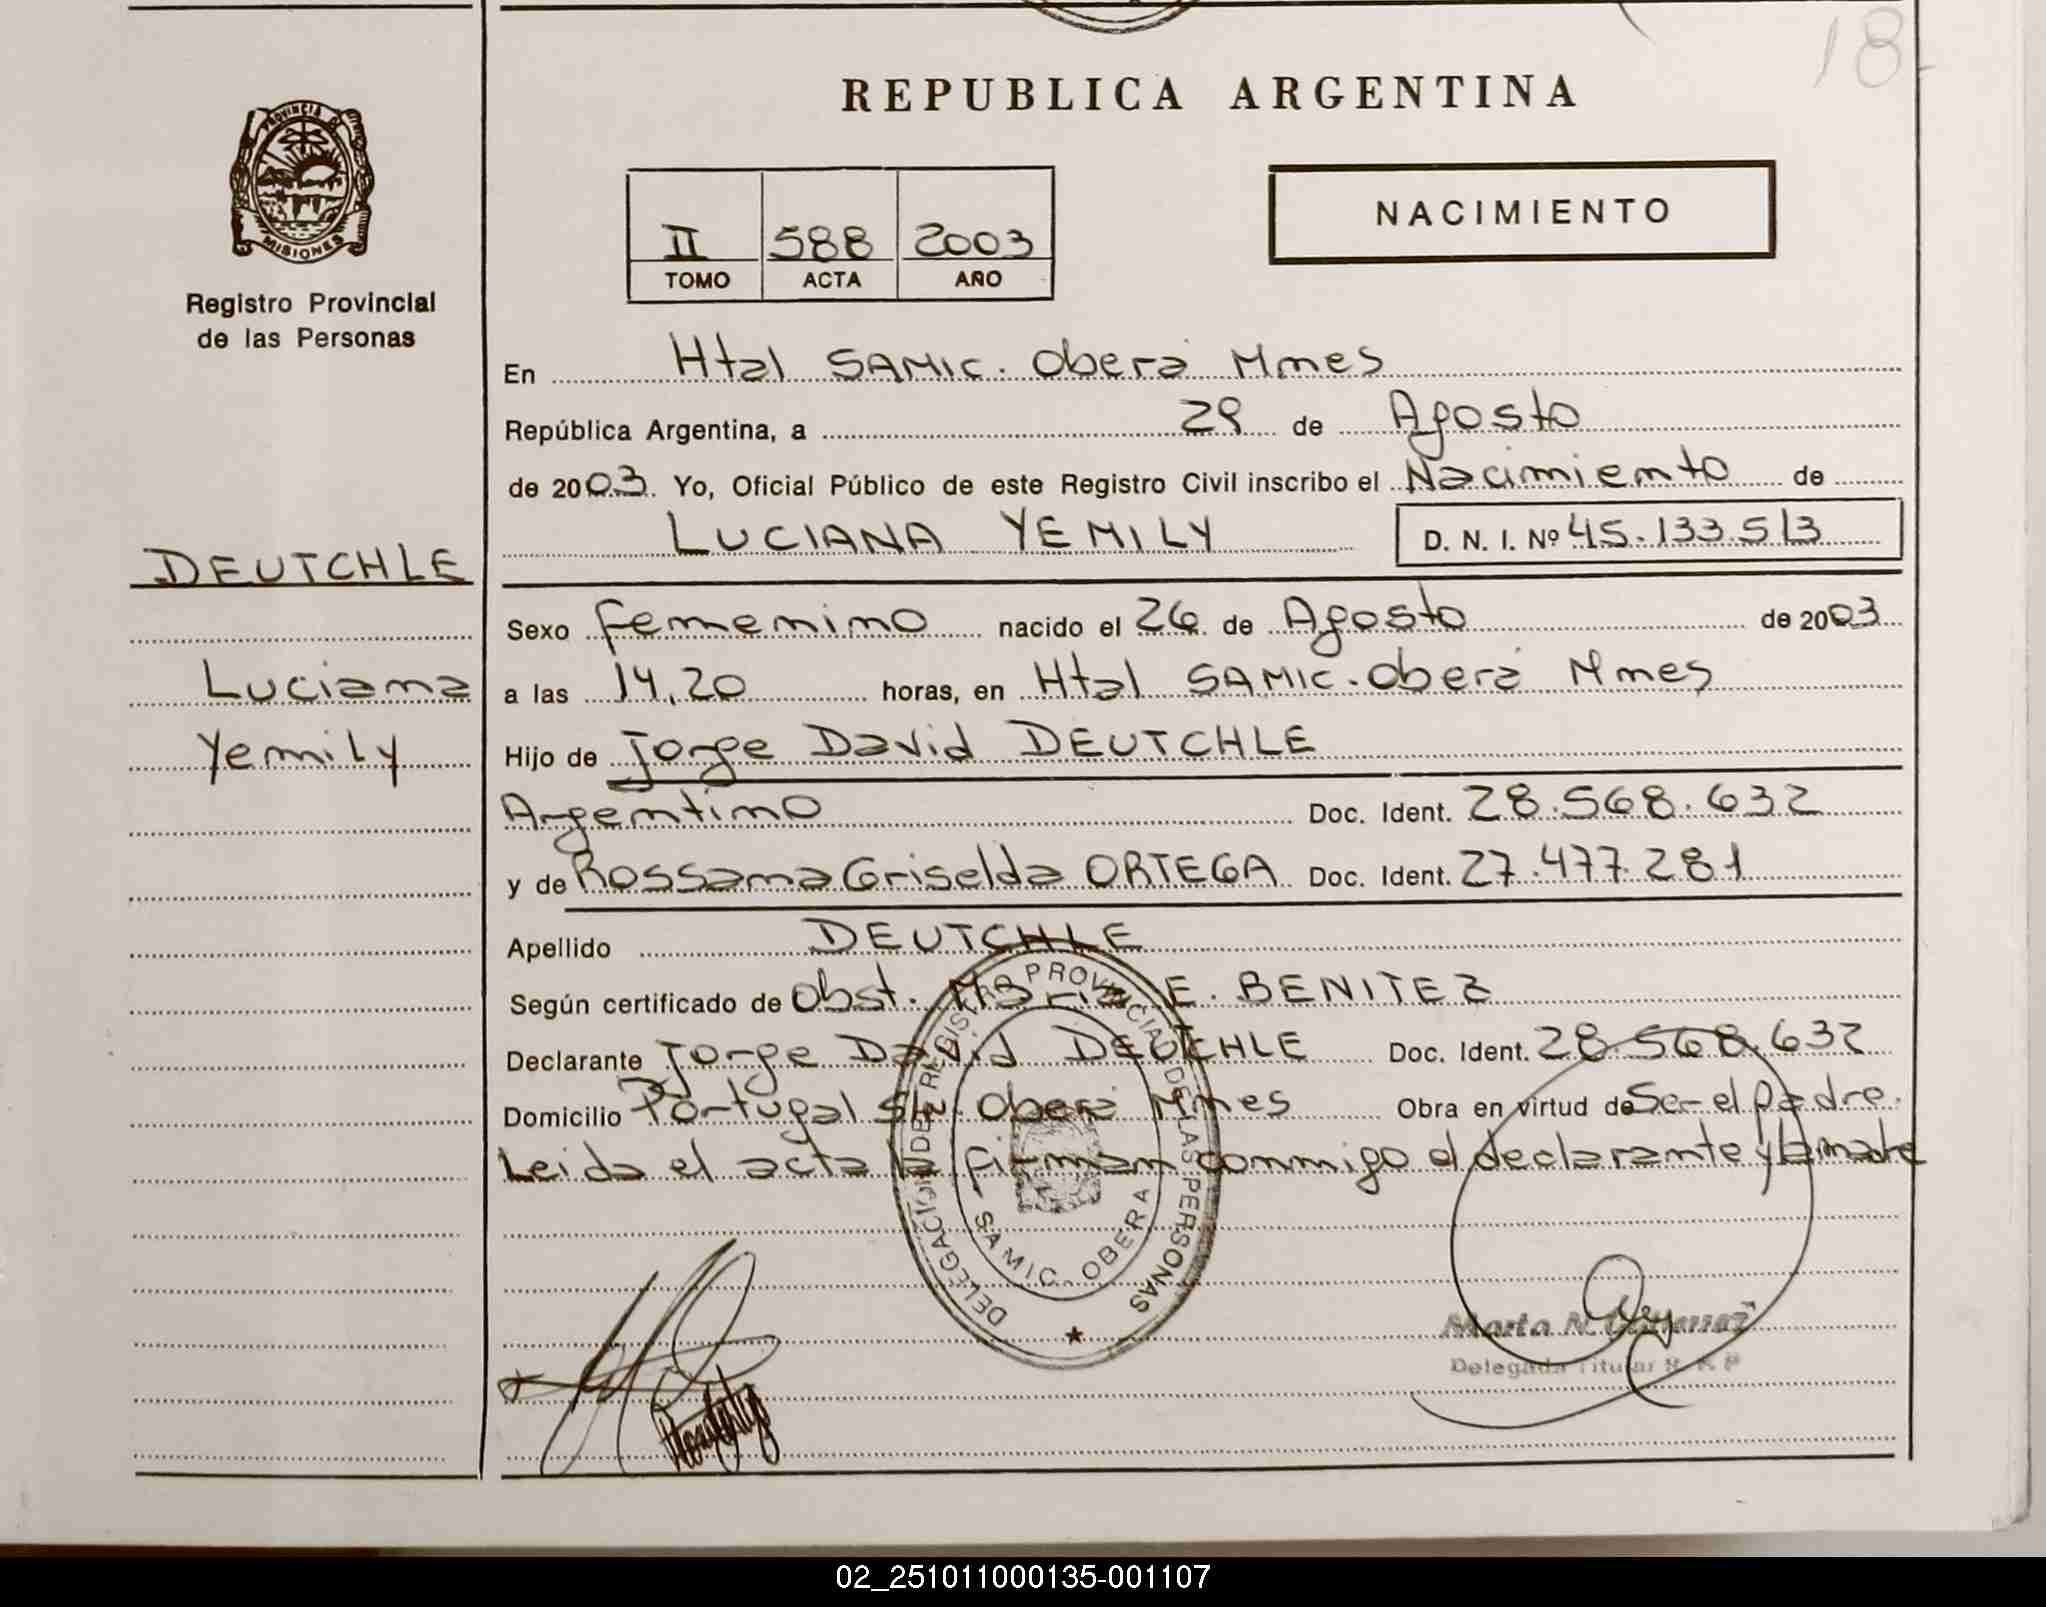 18
REPUBLICA ARGENTINA
PROVINCIA DE MISIONES
Registro Provincial
de las Personas
II 588 2003
TOMO ACTA AÑO
NACIMIENTO
En Htal SAMIC. Oberá Mnes
República Argentina, a 29 de Agosto
de 2003. Yo, Oficial Público de este Registro Civil inscribo el Nacimiento de
LUCIANA YEMILY D. N. I. Nº 45.133.513
DEUTCHLE
Luciana
Yemily
Sexo femenino nacido el 26 de Agosto de 2003
a las 14,20 horas, en Htal SAMIC. Oberá Mnes
Hijo de Jorge David DEUTCHLE
Argentino Doc. Ident. 28.568.632
y de Rossana Griselda ORTEGA Doc. Ident. 27.477.281
Apellido DEUTCHLE
Según certificado de Obst. Maria E. BENITEZ
Declarante Jorge David DEUTCHLE Doc. Ident. 28.568.632
Domicilio Portugal S/N. Oberá Mnes Obra en virtud de Ser el Padre.
Leida el acta la firman conmigo el declarante y la madre
DELEGACION DE REGISTRO PROVINCIAL DE LAS PERSONAS
SAMIC. OBERA
Marta N.
Delegada Titular R. P. P
02_251011000135-001107